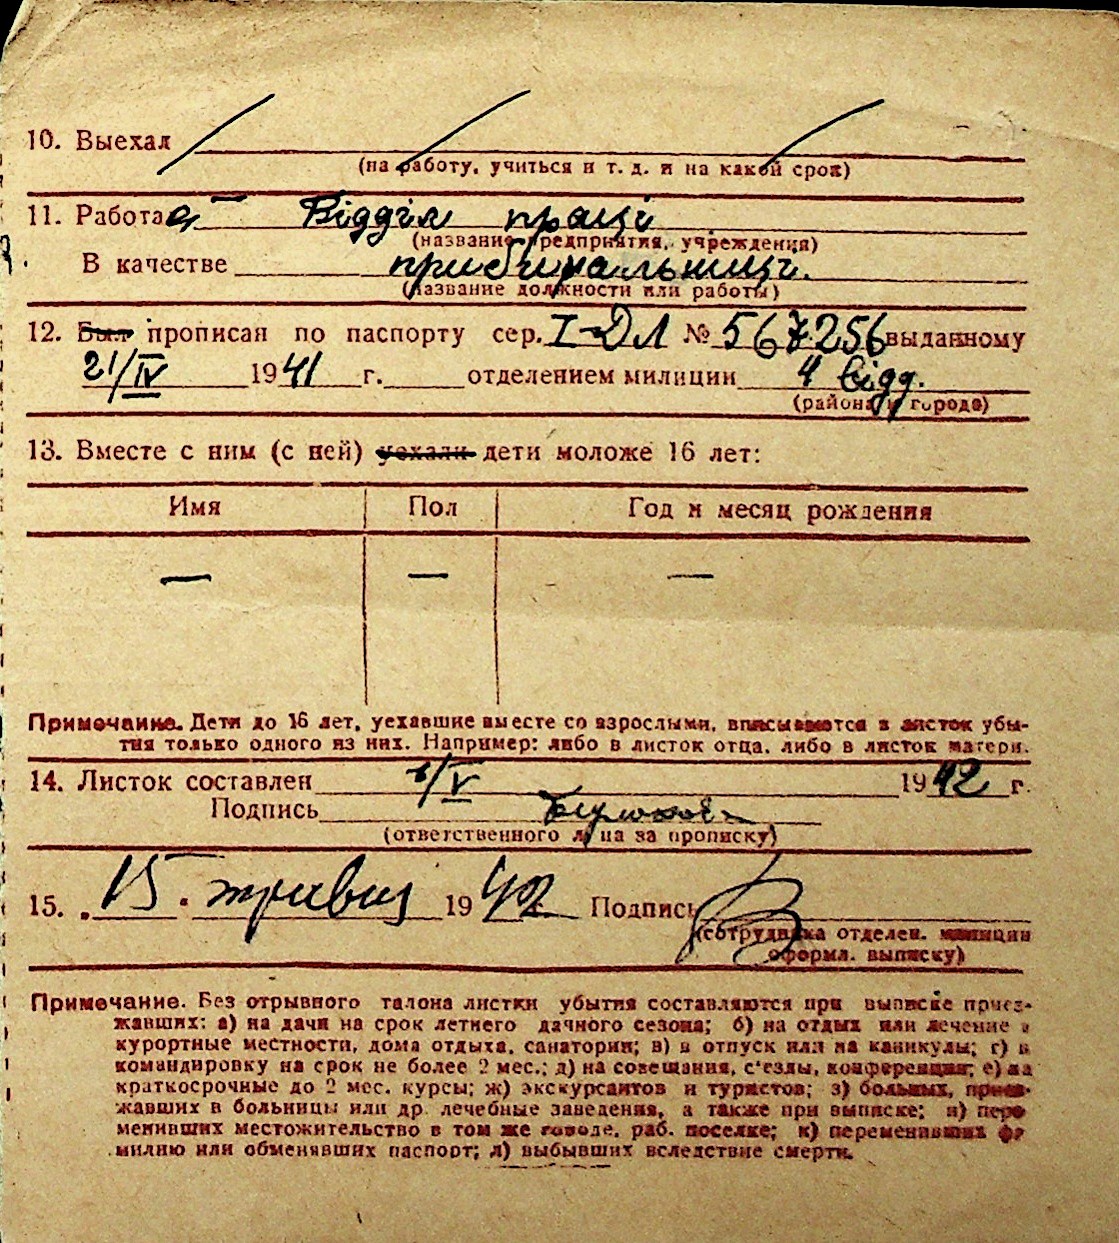 10. Выехал
(на работу, учиться и т. д. и на какой срок)
11. Работа Відділ праці
(название предприятия, учреждения)
В качестве прибиральниці.
(название должности или работы)
12. Был прописан по паспорту сер. I-ДЛ № 567256 выданному
21/IV 1941 г. отделением милиции 4 відд.
(района и города)
13. Вместе с ним (с ней) уехали дети моложе 16 лет:
Имя Пол Год и месяц рождения
— — —
Примечание. Дети до 16 лет, уехавшие вместе со взрослыми, вписываются в листок убы-
тия только одного из них. Например: либо в листок отца, либо в листок матери.
14. Листок составлен /V 1942 г.
Подпись
(ответственного лица за прописку)
15. „15. травня 1942 Подпись
(сотрудника отделен. милиции
оформл. выписку)
Примечание. Без отрывного талона листки убытия составляются при выписке приез-
жавших: а) на дачи на срок летнего дачного сезона; б) на отдых или лечение в
курортные местности, дома отдыха, санатории; в) в отпуск или на каникулы; г) в
командировку на срок не более 2 мес.; д) на совещания, с'езды, конференции; е) на
краткосрочные до 2 мес. курсы; ж) экскурсантов и туристов; з) больных, приез-
жавших в больницы или др. лечебные заведения, а также при выписке; и) пере
менивших местожительство в том же городе, раб. поселке; к) переменивших фа
милию или обменявших паспорт; л) выбывших вследствие смерти.